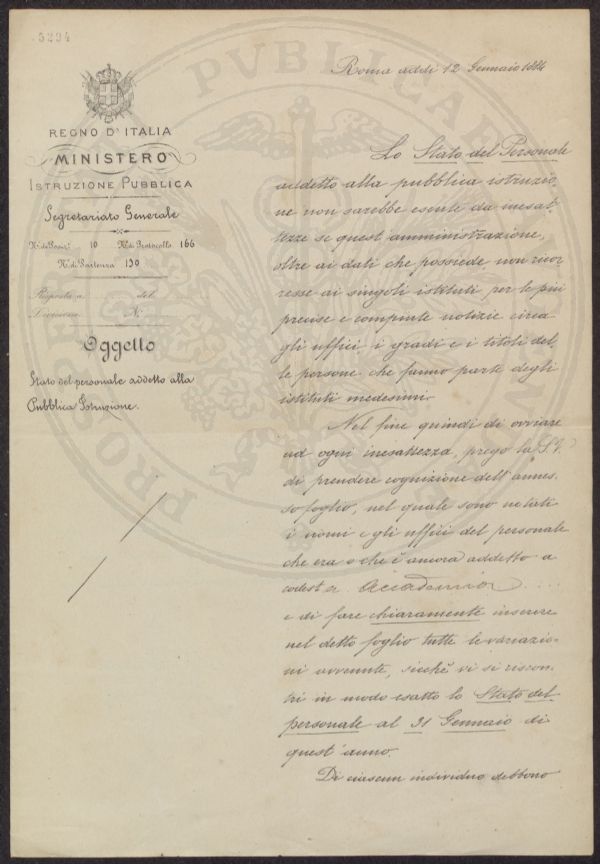 5294
Roma addì 12 Gennaio 1884
REGNO D'ITALIA
MINISTERO
ISTRUZIONE PUBBLICA
Segretariato Generale
N.º di Posiz. 10 N.º di Protocollo 166
N.º di Partenza 130
Risposta a del
Divisione N.º
Oggetto
Stato del personale addetto alla
Pubblica Istruzione.
Lo Stato del Personale
addetto alla pubblica istruzio,
ne non sarebbe esente da inesat,
tezze se quest' amministrazione,
oltre ai dati che possiede, non ricor
resse ai singoli istituti per le più
precise e compiute notizie circa
gli uffici, i gradi e i titoli del,
le persone che fanno parte degli
istituti medesimi.
Nel fine quindi di ovviare
ad ogni inesattezza, prego la S. V.
di prendere cognizione dell' annes,
so foglio, nel quale sono notati
i nomi e gli uffici del personale
che era o che è ancora addetto a
codesta Accademia
e di fare chiaramente inserire
nel detto foglio tutte le variazio-
ni avvenute, sicchè vi si riscon,
tri in modo esatto lo Stato del
personale al 31 Gennaio di
quest' anno.
Di ciascun individuo debbono
PVBLICAE
PROSPER